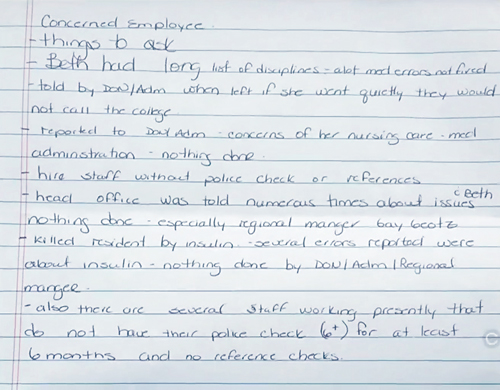 Concerned Employee.
- things to ask
- Beth had long list of disciplines - alot med errors not fired
- told by DON/Adm when left if she went quietly they would
not call the college
- reported to DON/Adm - concerns of her nursing care - med
adminstration - nothing done.
- hire staff without police check or references
- head office was told numerous times about issues c Beth
nothing done - especially regional manger
- killed resident by insulin - several errors reported were
about insulin - nothing done by DON/Adm/Regional
manger.
- also there are several staff working presently that
do not have their police check (6+) for at least
6 months and no reference checks.